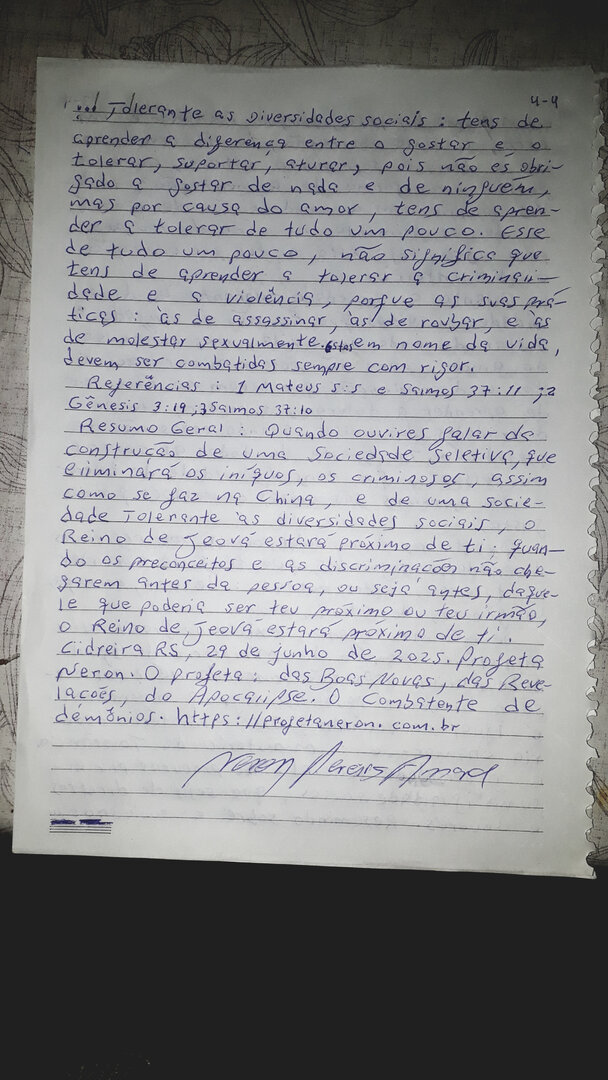 4-4
... Tolerante as Diversidades sociais : tens de
aprender a diferença entre o gostar e o
tolerar, suportar, aturar, pois não és obri-
gado a gostar de nada e de ninguém,
mas por causa do amor, tens de apren-
der a tolerar de tudo um pouco. Esse
de tudo um pouco, não significa que
tens de aprender a tolerar a criminali-
dade e a violência, porque as suas prá-
ticas : às de assassinar, às de roubar, e as
de molestar sexualmente. Estas em nome da vida,
devem ser combatidas sempre com rigor.
Referências : 1 Mateus 5:5 e Salmos 37:11 ;2
Gênesis 3:19 ;3 Salmos 37:10
Resumo Geral : Quando ouvires falar da
construção de uma Sociedade Seletiva, que
eliminará os iníquos, os criminosos, assim
como se faz na China, e de uma socie-
dade Tolerante às diversidades sociais, o
Reino de Jeová estará próximo de ti; quan-
do os preconceitos e as discriminações não che-
garem antes da pessoa, ou seja antes, daque-
le que poderia ser teu próximo ou teu irmão,
o Reino de Jeová estará próximo de ti.
Cidreira RS, 29 de junho de 2025. Profeta
Neron. O profeta : das Boas Novas, das Reve-
lações, do Apocalipse. O Combatente de
demônios. https://profetaneron.com.br